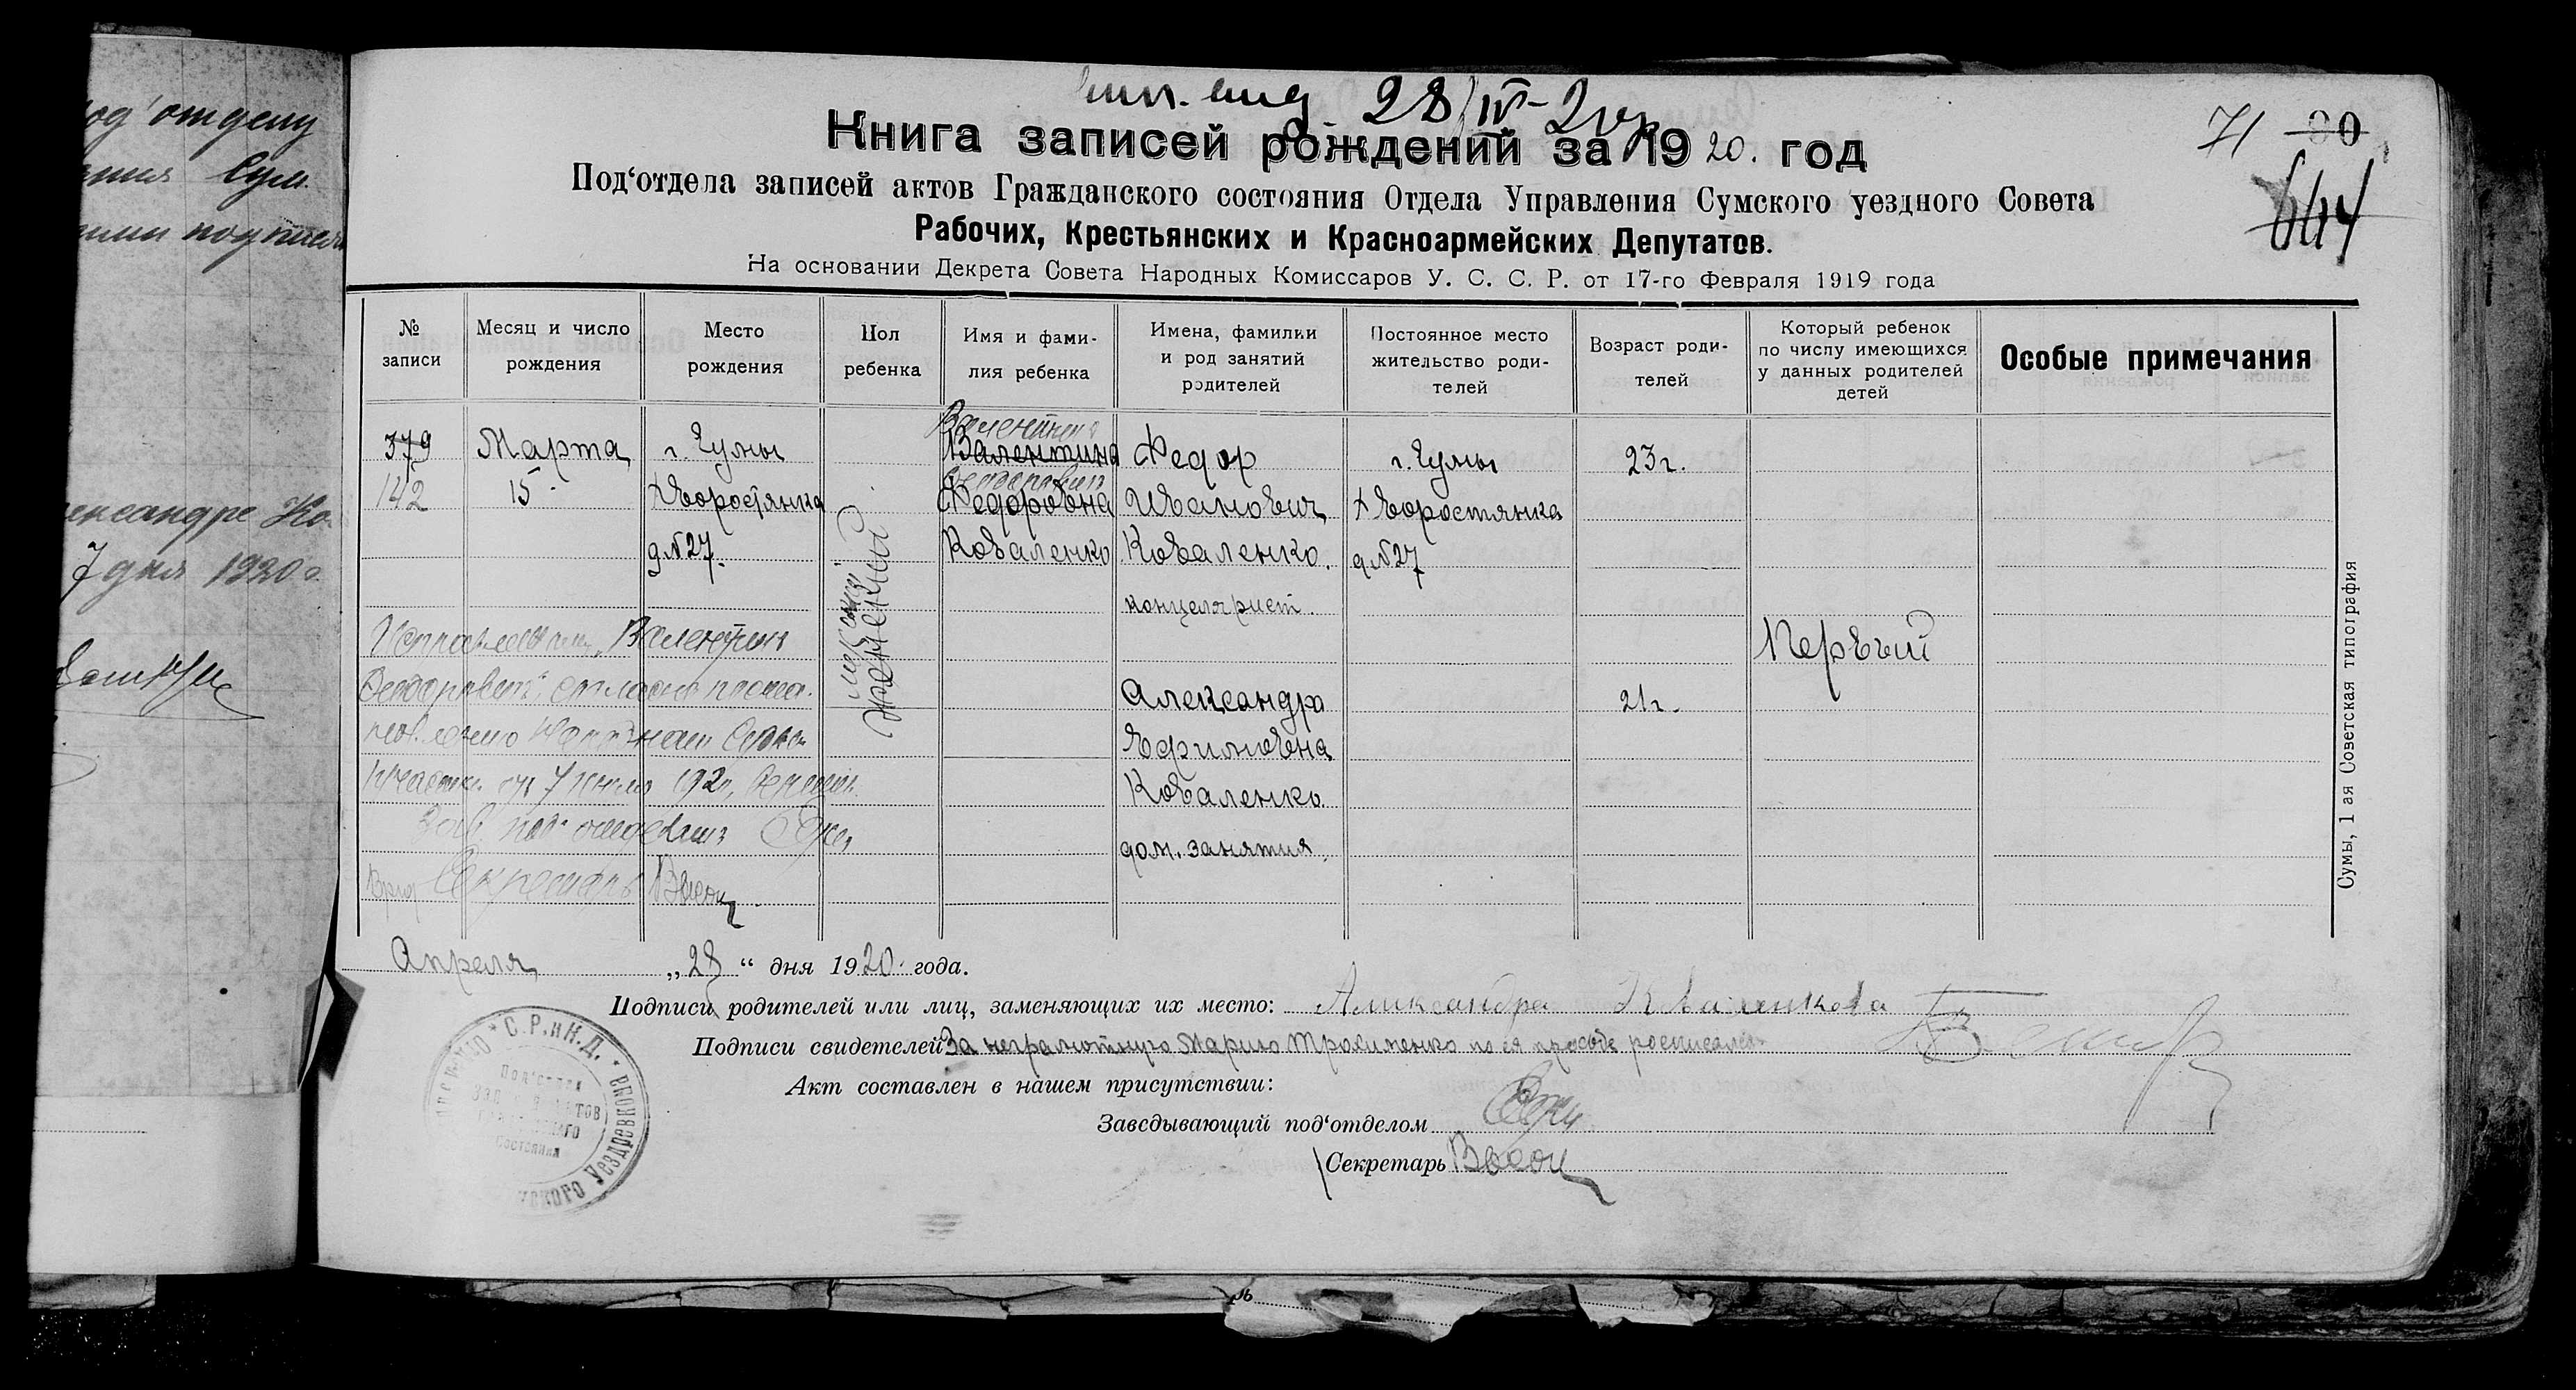 вып. вид 28/IV-20 г.
71 90
644
Книга записей рождений за 1920. год
Под‘отдела записей актов Гражданского состояния Отдела Управления Сумского уездного Совета
Рабочих, Крестьянских и Красноармейских Депутатов.
На основании Декрета Совета Народных Комиссаров У. С. С. Р. от 17-го Февраля 1919 года
№ записи
Месяц и число рождения
Место рождения
Пол ребенка
Имя и фамилия ребенка
Имена, фамилии и род занятий родителей
Постоянное место жительство родителей
Возраст родителей
Который ребенок по числу имеющихся у данных родителей детей
Особые примечания
379
142
Марта
15
г. Сумы
Хворостянка
д№27.
мужской
женский
Валентин
Валентина
Феодорович
Федоровна
Коваленко
Федор
Иванович
Коваленко.
канцелярист.
Александра
Ефимовна
Коваленко
дом. занятия.
г. Сумы
Хворостянка
д№27
23г.
21г.
Первый
Валентин
Феодорович согласно поста-
новлению
7 192
Зав. под
Секретарь
Апреля „28“ дня 1920 года.
Подписи родителей или лиц, заменяющих их место: Александра Коваленкова
Подписи свидетелей За неграмотную Марию Трофименко по ея просьбе росписался
Акт составлен в нашем присутствии:
Заведывающий под‘отделом
Секретарь
Сумы, 1 ая Советская типография
С.Р.и К.Д.
под‘отдету
7 дня 1920 г.